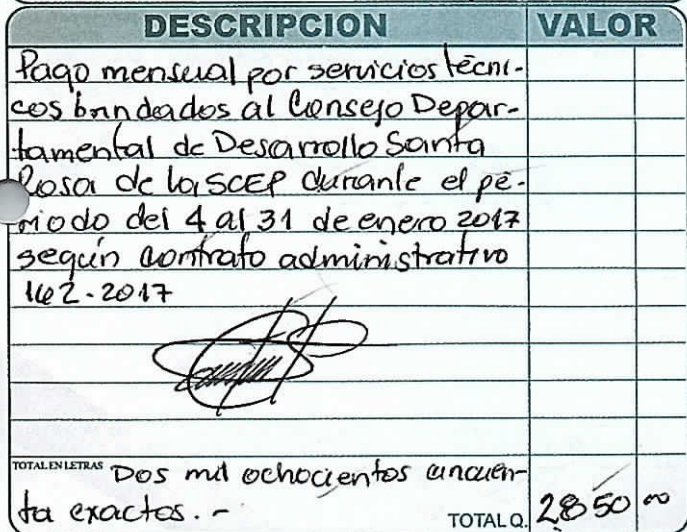 DESCRIPCION VALOR
Pago mensual por servicios técni-
cos brindados al Consejo Depar-
tamental de Desarrollo Santa
Rosa de la SCEP durante el pe-
riodo del 4 al 31 de enero 2017
según contrato administrativo
162-2017
TOTAL EN LETRAS Dos mil ochocientos cincuen-
ta exactos.-
TOTAL Q. 2850 00